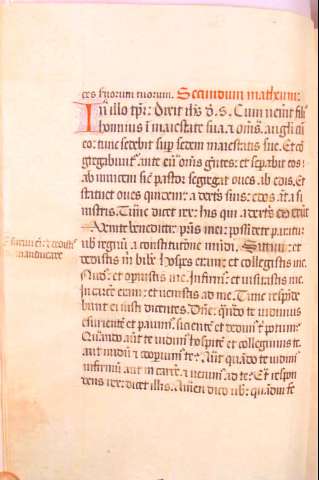 ces servorum tuorum. Secundum matheum:
In illo tpr: Dixit ihs d. s. Cum venerit fili
hominis i maiestate sua. ⁊ oms angli cu
eo: tunc sedebit sup sedem maiestatis sue. Et co
gregabunt ante eu oms gentes: et separabit eos
ab invicem sic pastor segregat oves ab edis. Et
statuet oves quidem a dextris suis: edos at a si
nistris. Tunc dicet rex his qui a dextris eius erunt
Venite benedicti patris mei: possidete paratu
vob regnu a constitutione mudi. Sitivi: et
Esurivi ei: ⁊ dedistis
manducare
dedistis m bibe. Hospes eram: et collegistis me.
Nudus: et operuistis me. Infirmus: et visitastis me.
In carce eram: et venistis ad me. Tunc respode
bunt ei iusti dicentes. Dne: quando te vidimus
esuriente et pavimus: sitiente et dedimus t potum:
Quando aut te vidimus hospite et collegimus te.
aut nudu ⁊ cooperuim te: Aut quado te vidim
infirmu aut in carce: ⁊ venimus ad te: Et respon
dens rex: dicet illis. Amen dico vob: quadiu fe